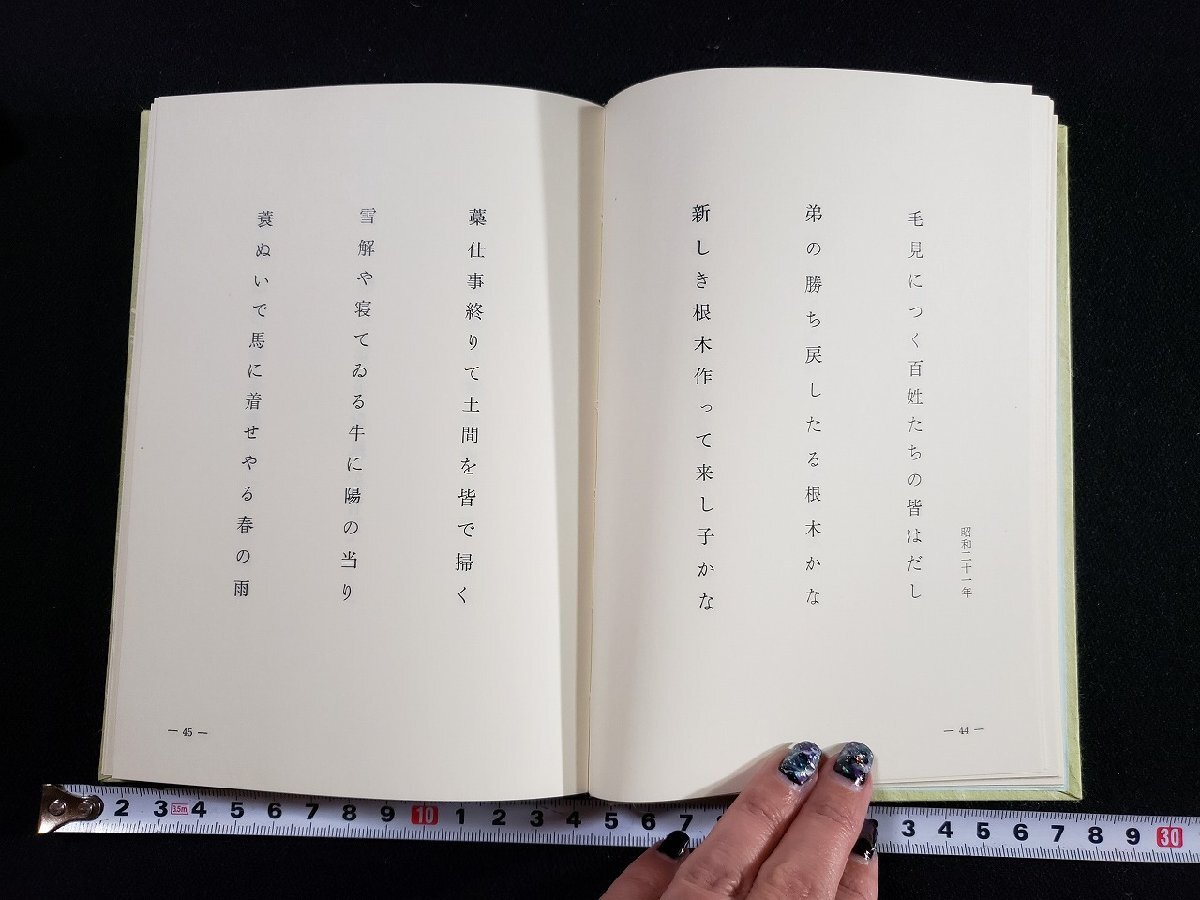 昭和二十一年
毛見につく百姓たちの皆はだし
弟の勝ち戻したる根木かな
新しき根木作って来し子かな
— 44 —
藁仕事終りて土間を皆で掃く
雪解や寝てゐる牛に陽の当り
蓑ぬいで馬に着せやる春の雨
— 45 —
2 3 3.5m 4 5 6 7 8 9 10 1 2 3 4 5 6 7 3 4 5 6 7 8 9 30